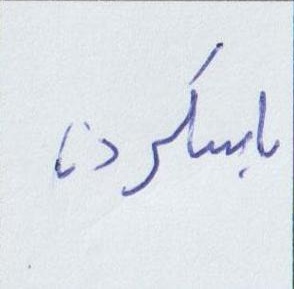 باسکردنا